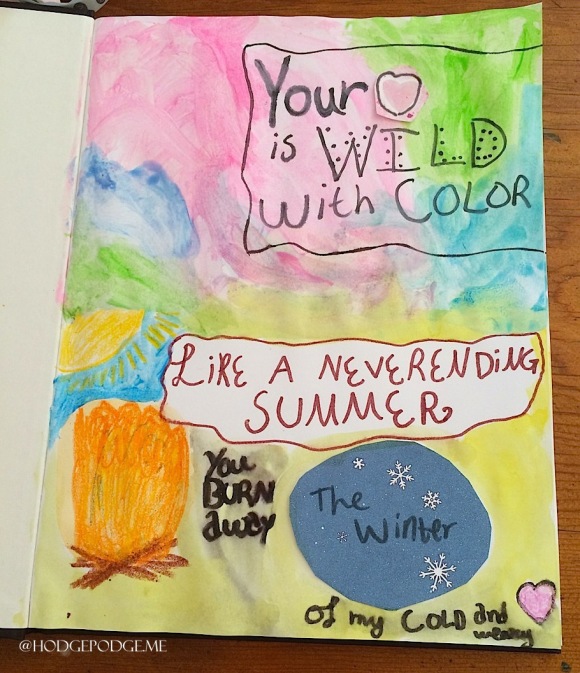 Your
is WILD
with COLOR
LIKE A NEVERENDING
SUMMER
You
BURN
away
The
Winter
Of my COLD and
weary
@HODGEPODGE.ME